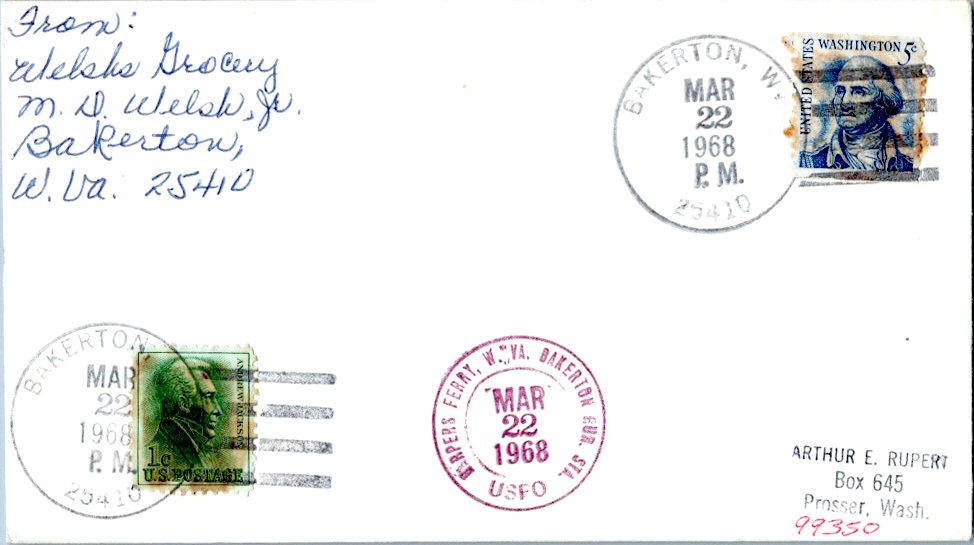 From:
Welshs Grocery
M. D. Welsh, Jr.
Bakerton,
W. Va. 25410
BAKERTON, W.
MAR
22
1968
P. M.
25410
UNITED STATES
WASHINGTON 5c
BAKERTON,
MAR
22
1968
P. M.
25410
ANDREW JACKSON
1c
U.S. POSTAGE
HARPERS FERRY, W. VA. BAKERTON RUR. STA.
MAR
22
1968
USPO
ARTHUR E. RUPERT
Box 645
Prosser, Wash.
99350